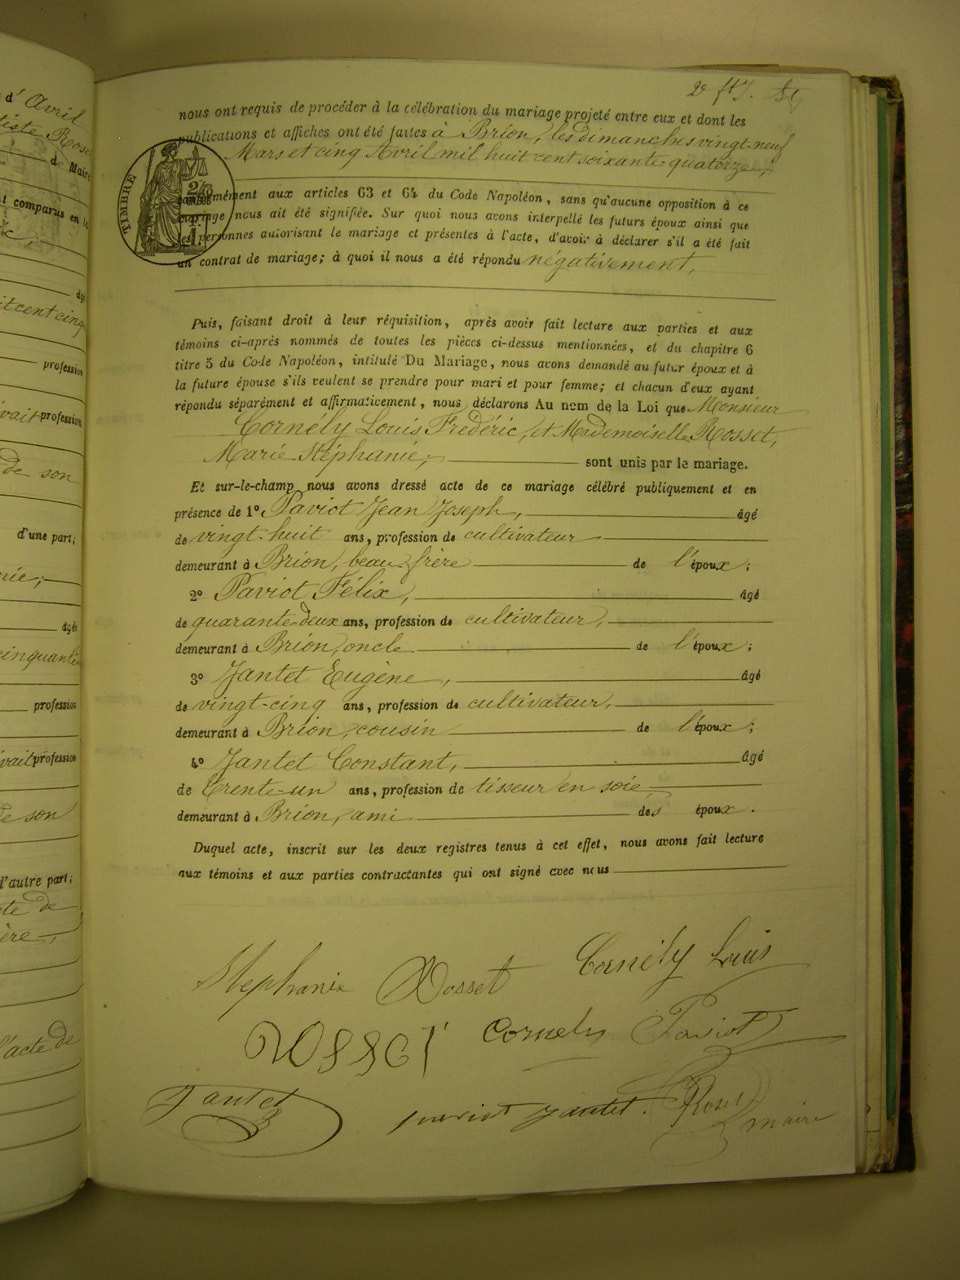 d' Avril
tiste Ros
d Maire
t comparus en l
âgé
it cent cinq
profession
vait profession
de son
d'une part;
nie,
âgée
cinquante
profession
vait profession
de son
l'autre part;
te de
ère
l'acte de
nous ont requis de procéder à la célébration du mariage projeté entre eux et dont les
publications et affiches ont été faites à Brion, les dimanches vingt-neuf
Mars et cinq Avril mil huit cent soixante-quatorze,
TIMBRE
conformément aux articles 63 et 64 du Code Napoléon, sans qu'aucune opposition à ce
mariage nous ait été signifiée. Sur quoi nous avons interpellé les futurs époux ainsi que
les personnes autorisant le mariage et présentes à l'acte, d'avoir à déclarer s'il a été fait
un contrat de mariage; à quoi il nous a été répondu négativement,
Puis, faisant droit à leur réquisition, après avoir fait lecture aux parties et aux
témoins ci-après nommés de toutes les pièces ci-dessus mentionnées, et du chapitre 6
titre 5 du Code Napoléon, intitulé Du Mariage, nous avons demandé au futur époux et à
la future épouse s'ils veulent se prendre pour mari et pour femme; et chacun d'eux ayant
répondu séparément et affirmativement, nous déclarons Au nom de la Loi que Monsieur
Cornely Louis Frédéric, et Mademoiselle Rosset,
Marie Stéphanie, sont unis par le mariage.
Et sur-le-champ nous avons dressé acte de ce mariage célébré publiquement et en
présence de 1° Paviot Jean Joseph, âgé
de vingt-huit ans, profession de cultivateur
demeurant à Brion, beau-frère de l'époux;
2° Paviot Félix, âgé
de quarante-deux ans, profession de cultivateur,
demeurant à Brion, oncle de l'époux;
3° Jantet Eugène, âgé
de vingt-cinq ans, profession de cultivateur,
demeurant à Brion, cousin de l'époux;
4° Jantet Constant, âgé
de trente-un ans, profession de tisseur en soie,
demeurant à Brion, ami des époux.
Duquel acte, inscrit sur les deux registres tenus à cet effet, nous avons fait lecture
aux témoins et aux parties contractantes qui ont signé avec nous
Stephanie Rosset Cornély Louis
Rosset Cornely Paviot
Jantet paviot Jantet. Rosset
maire